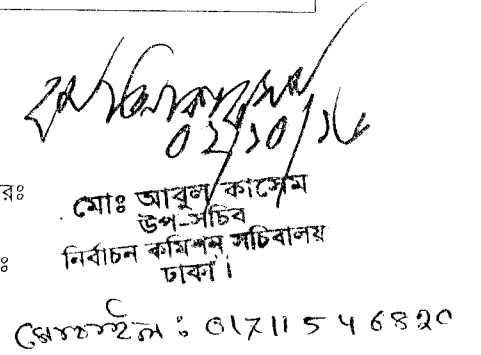 ০২/১০/১৮
রঃ
মোঃ আবুল কাসেম
উপ-সচিব
নির্বাচন কমিশন সচিবালয়
ঃ
ঢাকা।
মোবাইল : 01711546820